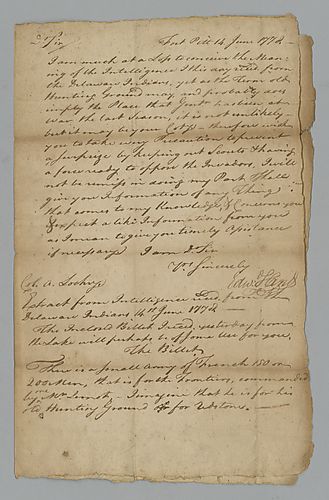 Dr Sir Fort Pitt 14 June 1778
I am much at a Loss to conceive the Mean-
ing of the Intelligence I this day recd. from
the Delaware Indians, yet as the Term old
Hunting Ground may and probably does
imply the Place that Genl. has been at
War the last Season, it is not unlikely
but it may be your Coty. therefore wish
you to take every Precaution to prevent
a Surprize by keeping out Scouts & having
a force ready to oppose the Invaders. I will
not be remiss in doing my Part, & shall
give you Information of any Thing
that comes to my Knowledge & Concerns you
& expect a like Information from you
as I mean to give you timely Assistance
if necessary I am Dr Sir
Yor Sincerely
Edwd Hand
Col. A. Lochry
Extract from Intelligence recd. from the
Delaware Indians 14th June 1778
The Inclosed Billet I recd. yesterday from
the Lake will perhaps be of some Use for you,
The Billet
There is a small Army of French 150 or
200 Men, that is for the Frontiers, command
by Mr. I imagine that he is for his
old Hunting Ground or for Redstone.